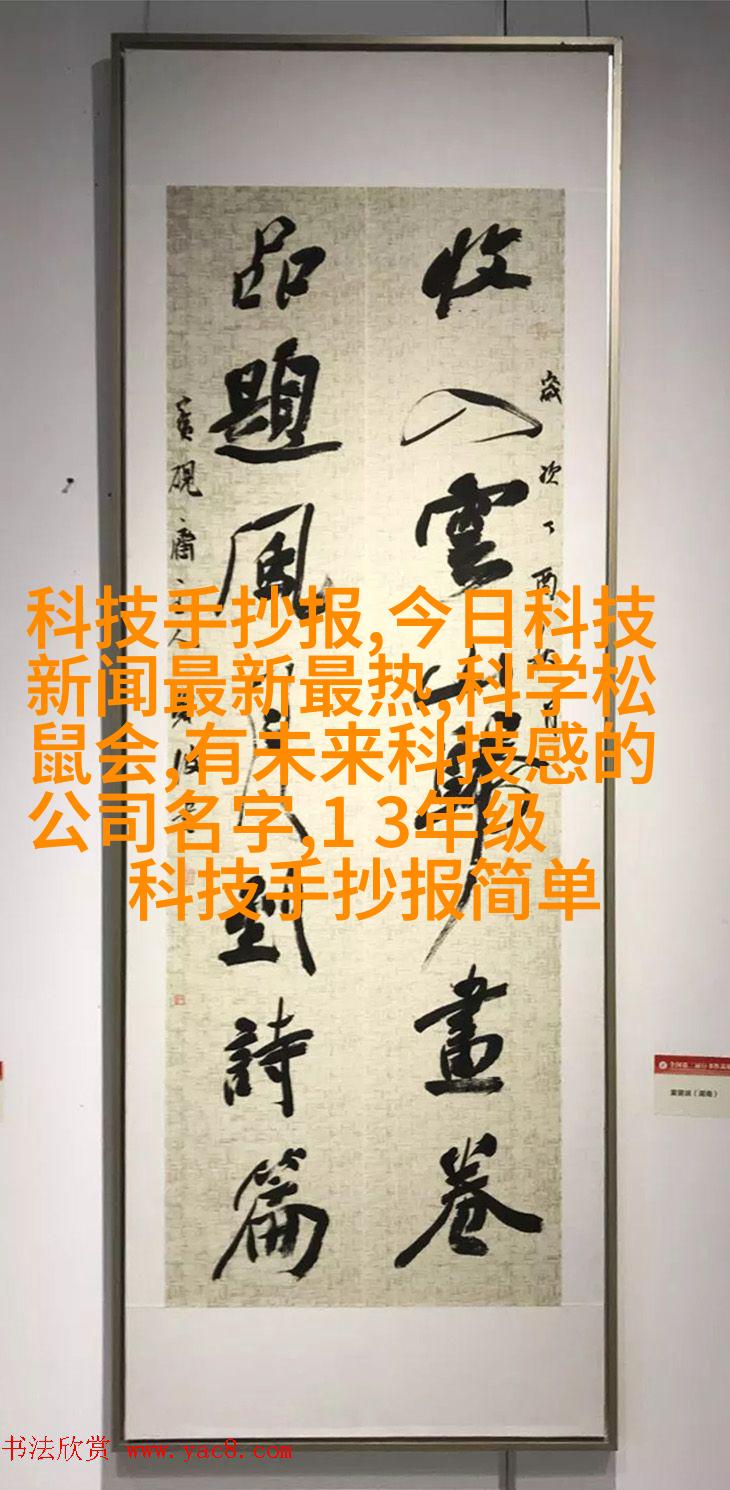 收入雲山畫卷
歲次丁酉
品題風月到詩篇
硯齋主人
科技手抄报,今日科技
新闻最新最热,科学松
鼠会,有未来科技感的
公司名字,1 3年级
科技手抄报简单
(湖南)
书法欣赏 www.yac8.com